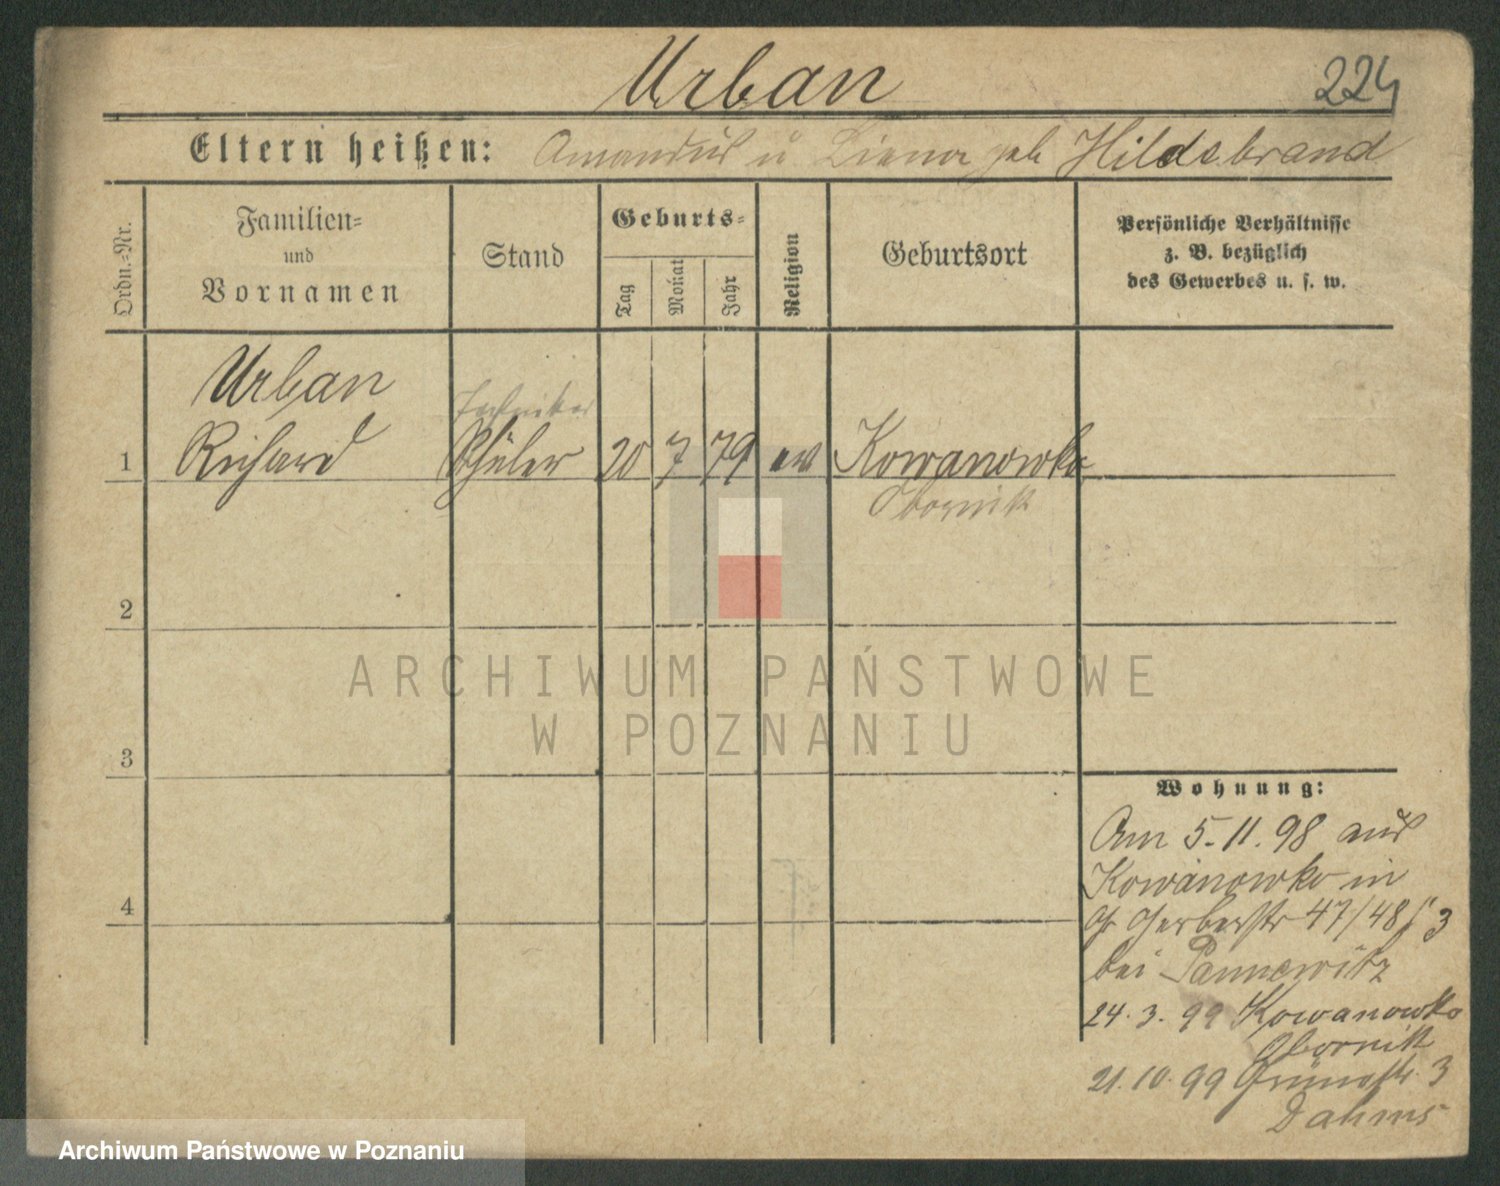 Urban
224
Eltern heißen: Amandus u geb Hildebrand
Ordn.=Nr.
Familien=
und
Vornamen
Stand
Geburts=
Tag
Monat
Jahr
Religion
Geburtsort
Persönliche Verhältnisse
z. B. bezüglich
des Gewerbes u. s. w.
Urban
Techniker
1 Richard Schüler 20 7 79 ev Kowanowko
Obornik
2
ARCHIWUM PAŃSTWOWE
W POZNANIU
3
Wohnung:
Am 5. 11. 98 aus
Kowanowko in
Gr Gerberstr 47/48 3
4
bei Pannewitz
24. 3. 99 Kowanowko
Obornik
21. 10. 99 Grünestr. 3
Dahms
Archiwum Państwowe w Poznaniu